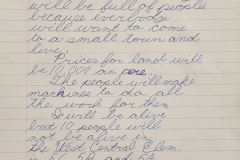 will be full of peoples
because everbody
will want to come
to a small town and
live.
Prices for land will
be 10,000 an
The people will make
machines to do all
the work for them
I will be alive
but 10 people will
not be alive in
the West Central Elem.
in 5A, 5B and